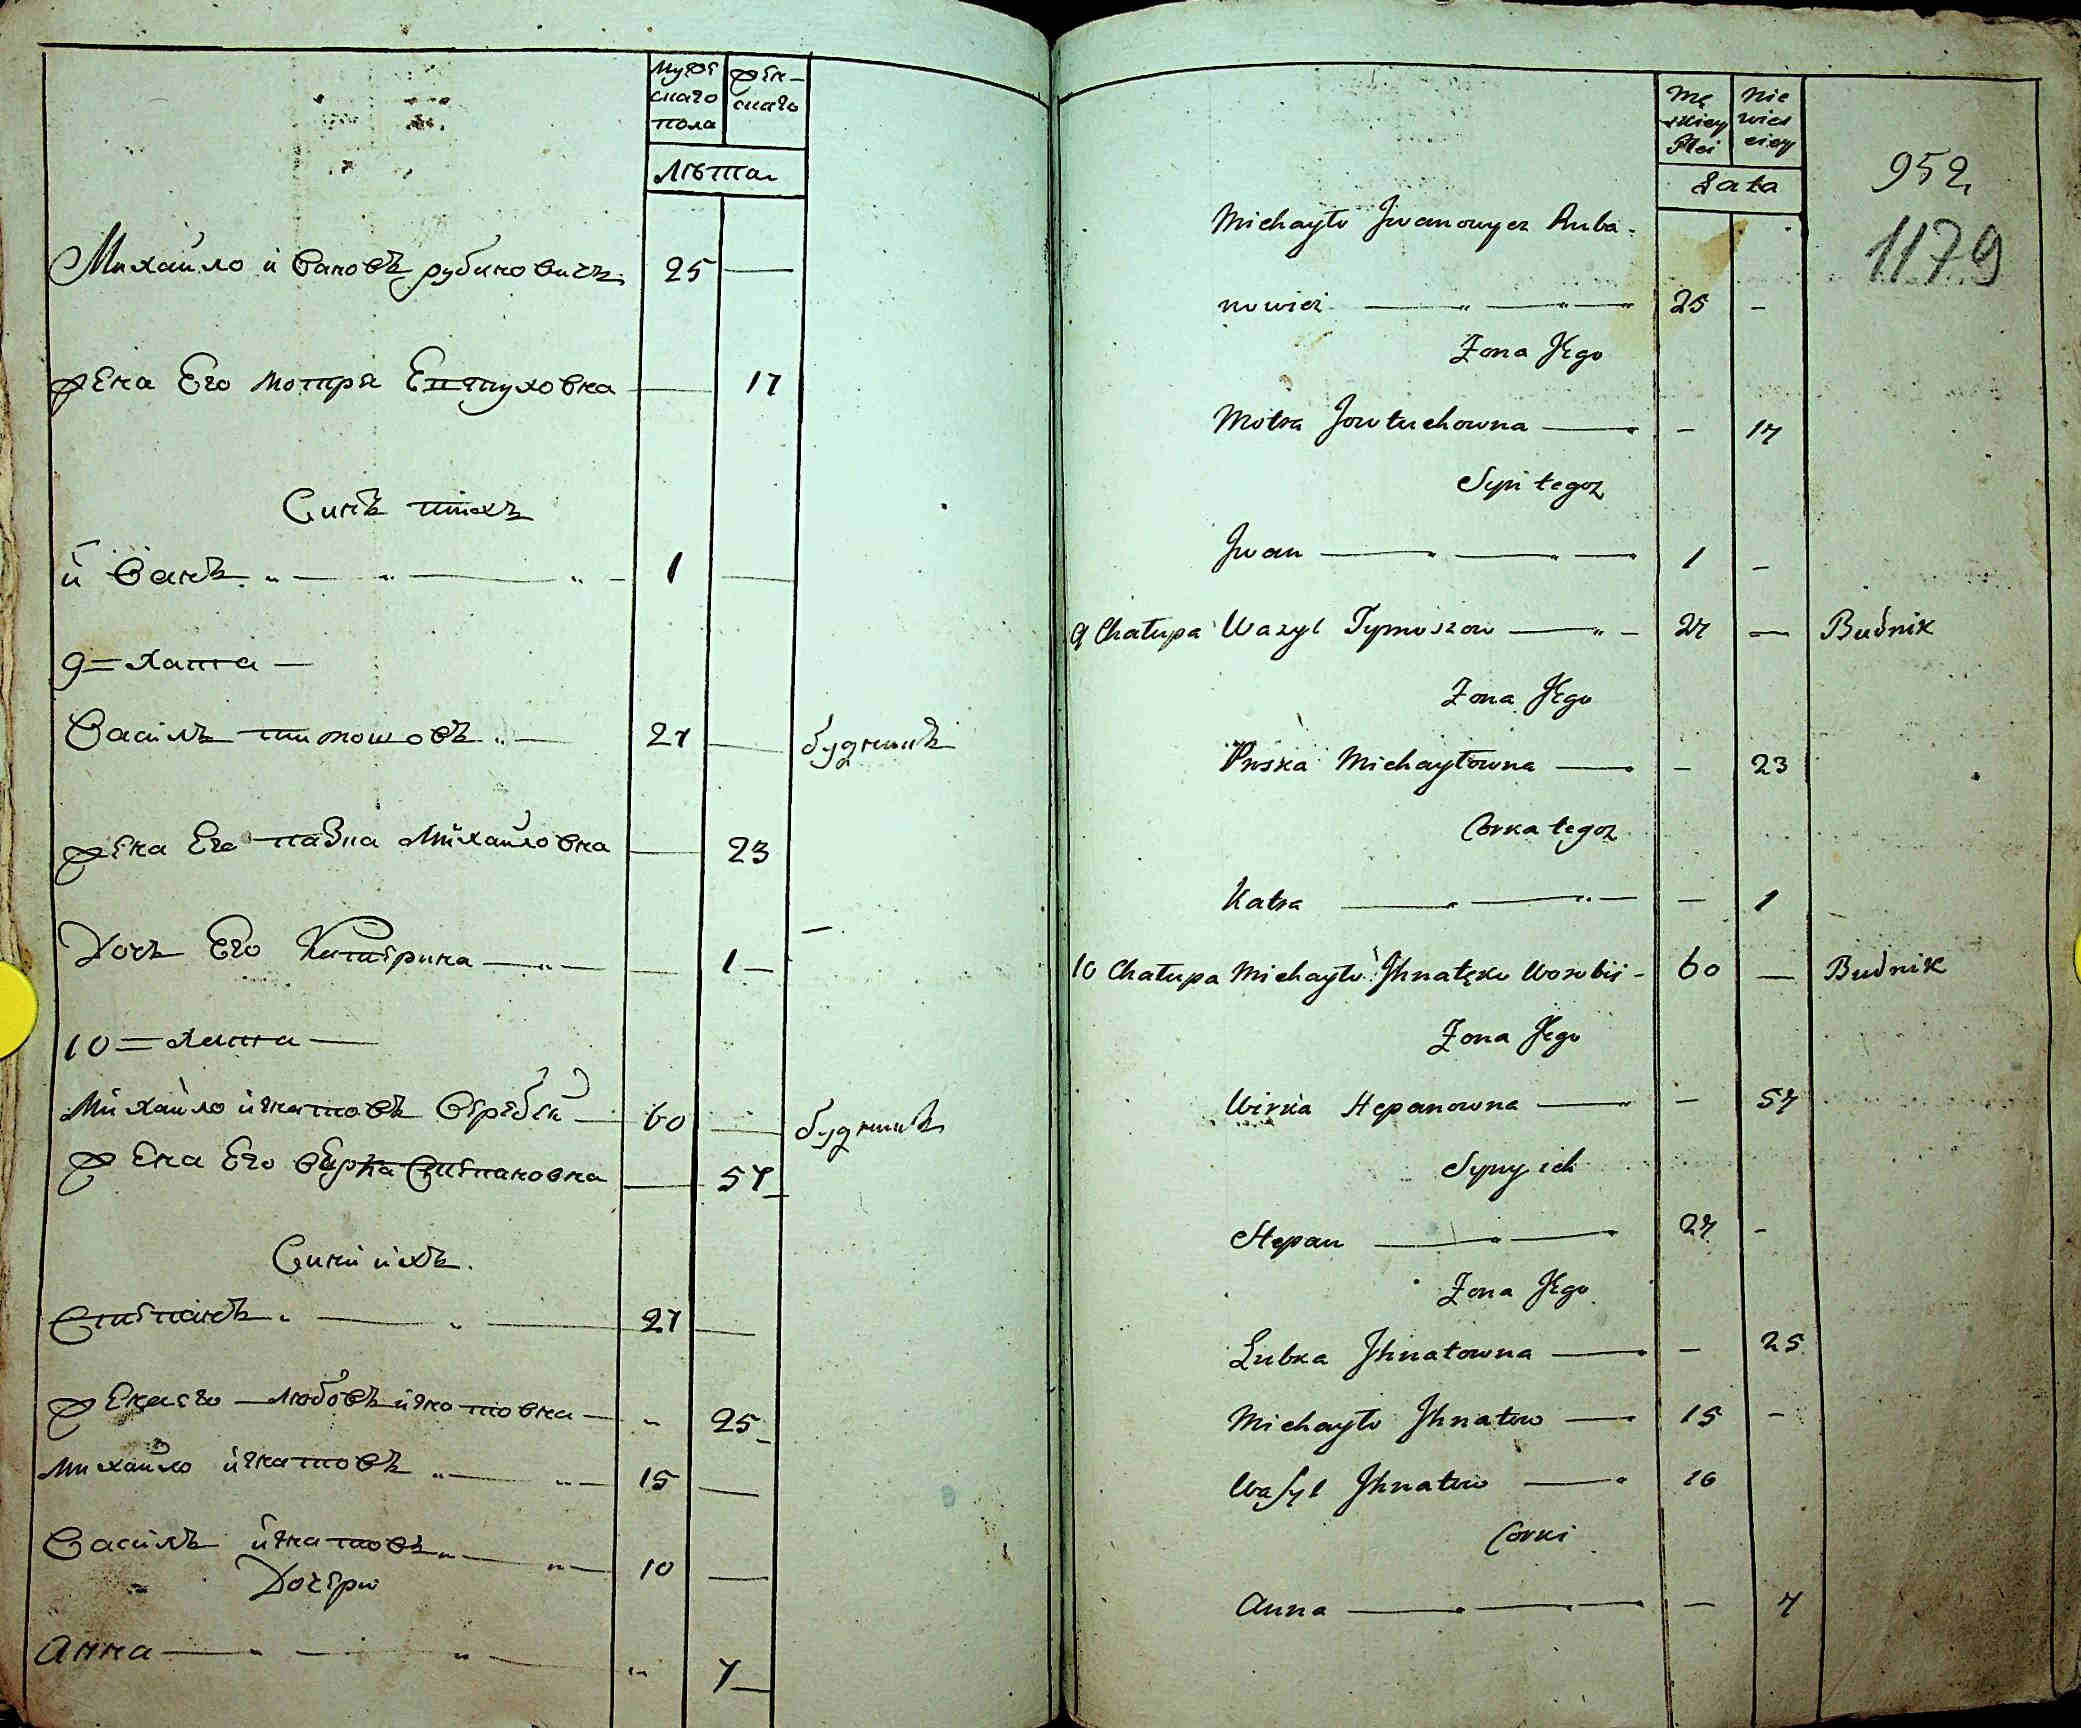 мужескаго пола
женскаго
Лѣта
Михайло иванов рубановичъ 25 —
жена Его мотря Евтуховна — 17
Синъ тихъ
иванъ 1 —
9 = хата —
Василъ тимошовъ 27 — будникъ
жена Его пазка Михайловна — 23
Дочь Его Катерина — 1 —
10 = хата —
Михайло игнатовъ 60 — будникъ
жена Его Степановна — 57
Сини ихъ.
Степанъ 27 —
жена его любовъ игнатовна — 25
Михайло игнатовъ 15 —
Василъ игнатовъ 10 —
Дочери
Анна 7 —
Męskiey Płci
Niewiesciey
Lata
952
1179
Michayło Jwanowycz Ruba-
nowicz — 25 —
Żona Jego
Motra Jowtuchowna — - 17
Syn tegoz
Jwan — 1 -
9 Chałupa Wazyl Tymoszow — 27 — Budnik
Żona Jego
Michayłowna — - 23
Corka tegoz
Katra — - 1
10 Chałupa Michayło Jhnatęko Worobii - 60 — Budnik
Żona Jego
Wirka Stepanowna — - 57
Syny ich
Stepan — 27 -
Żona Jego
Lubka Jhnatowna — - 25
Michayło Jhnatow — 15 -
Wasyl Jhnatow — 10
Corki
Anna — - 7